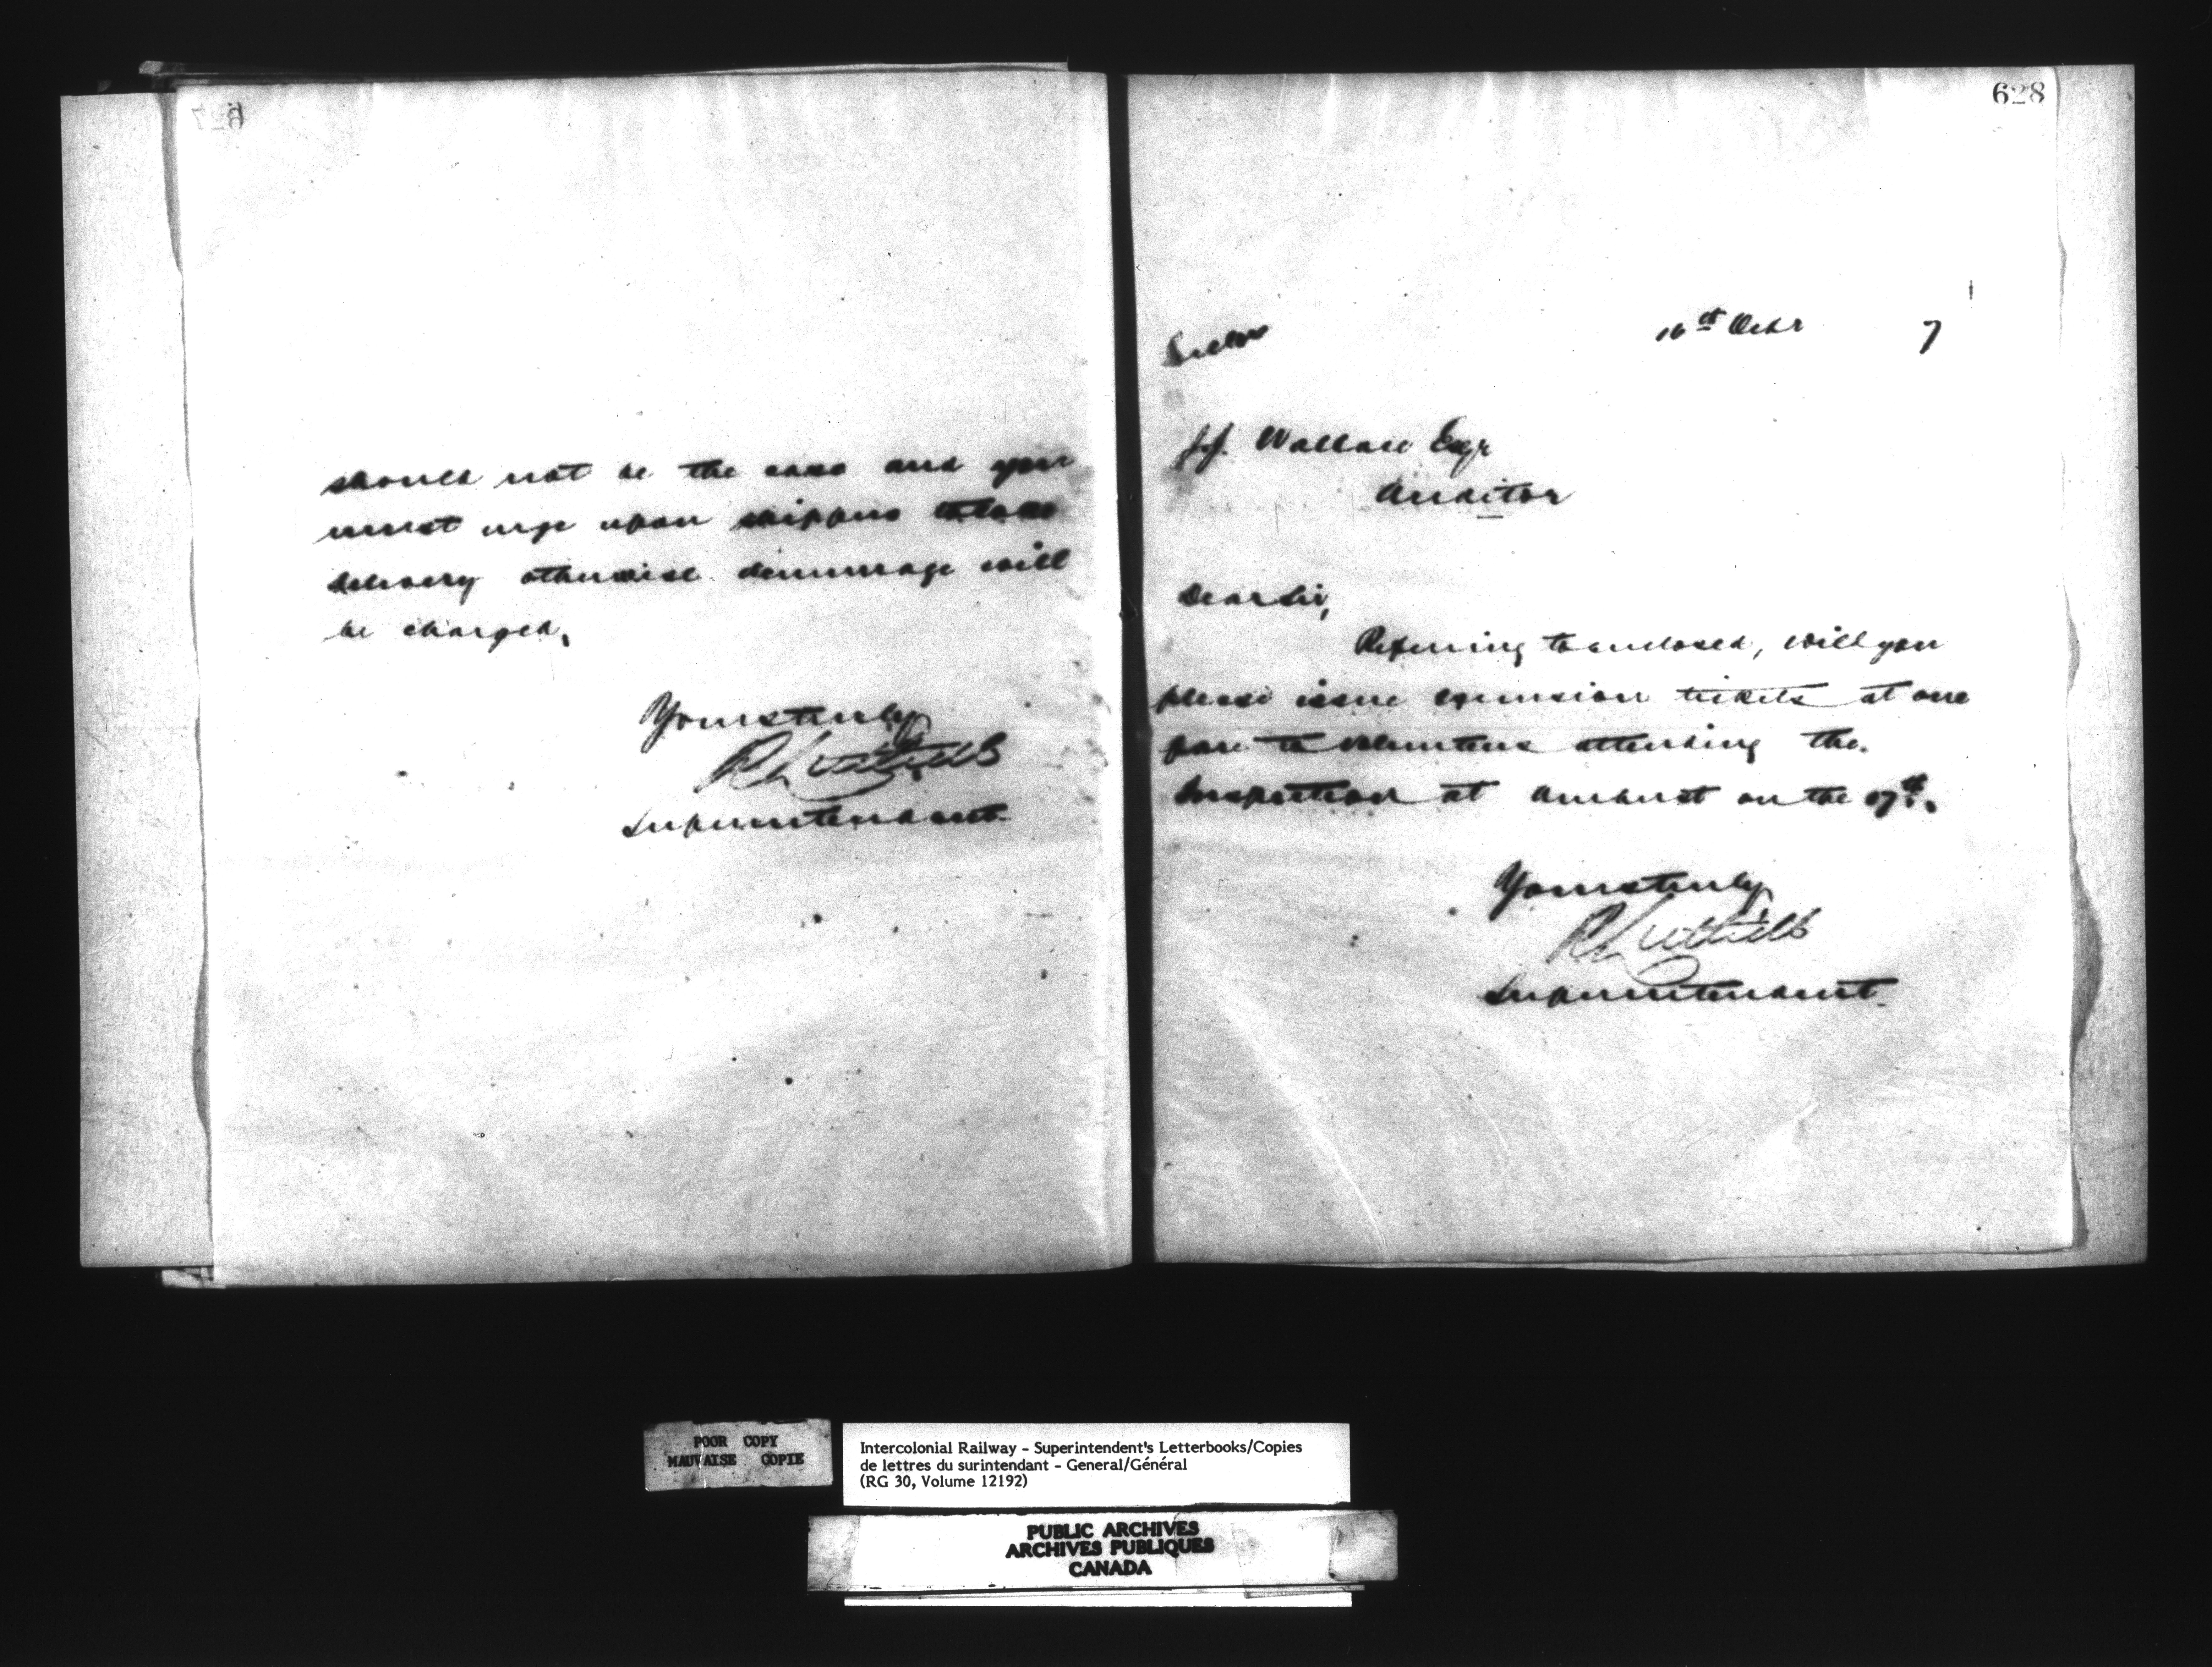 627
should not be the case and you
must urge upon shippers to take
delivery otherwise demurrage will
be charged.
Yours truly
R Luttrell
Superintendent
628
16th Octr 7
J.J. Wallace Esqr
Auditor
Dear Sir,
Referring to enclosed, will you
please issue excursion tickets at one
fare to volunteers attending the
Inspection at Amherst on the 17th.
Yours truly
R Luttrell
Superintendent
POOR COPY
MAUVAISE COPIE
Intercolonial Railway - Superintendent's Letterbooks/Copies
de lettres du surintendant - General/Général
(RG 30, Volume 12192)
PUBLIC ARCHIVES
ARCHIVES PUBLIQUES
CANADA